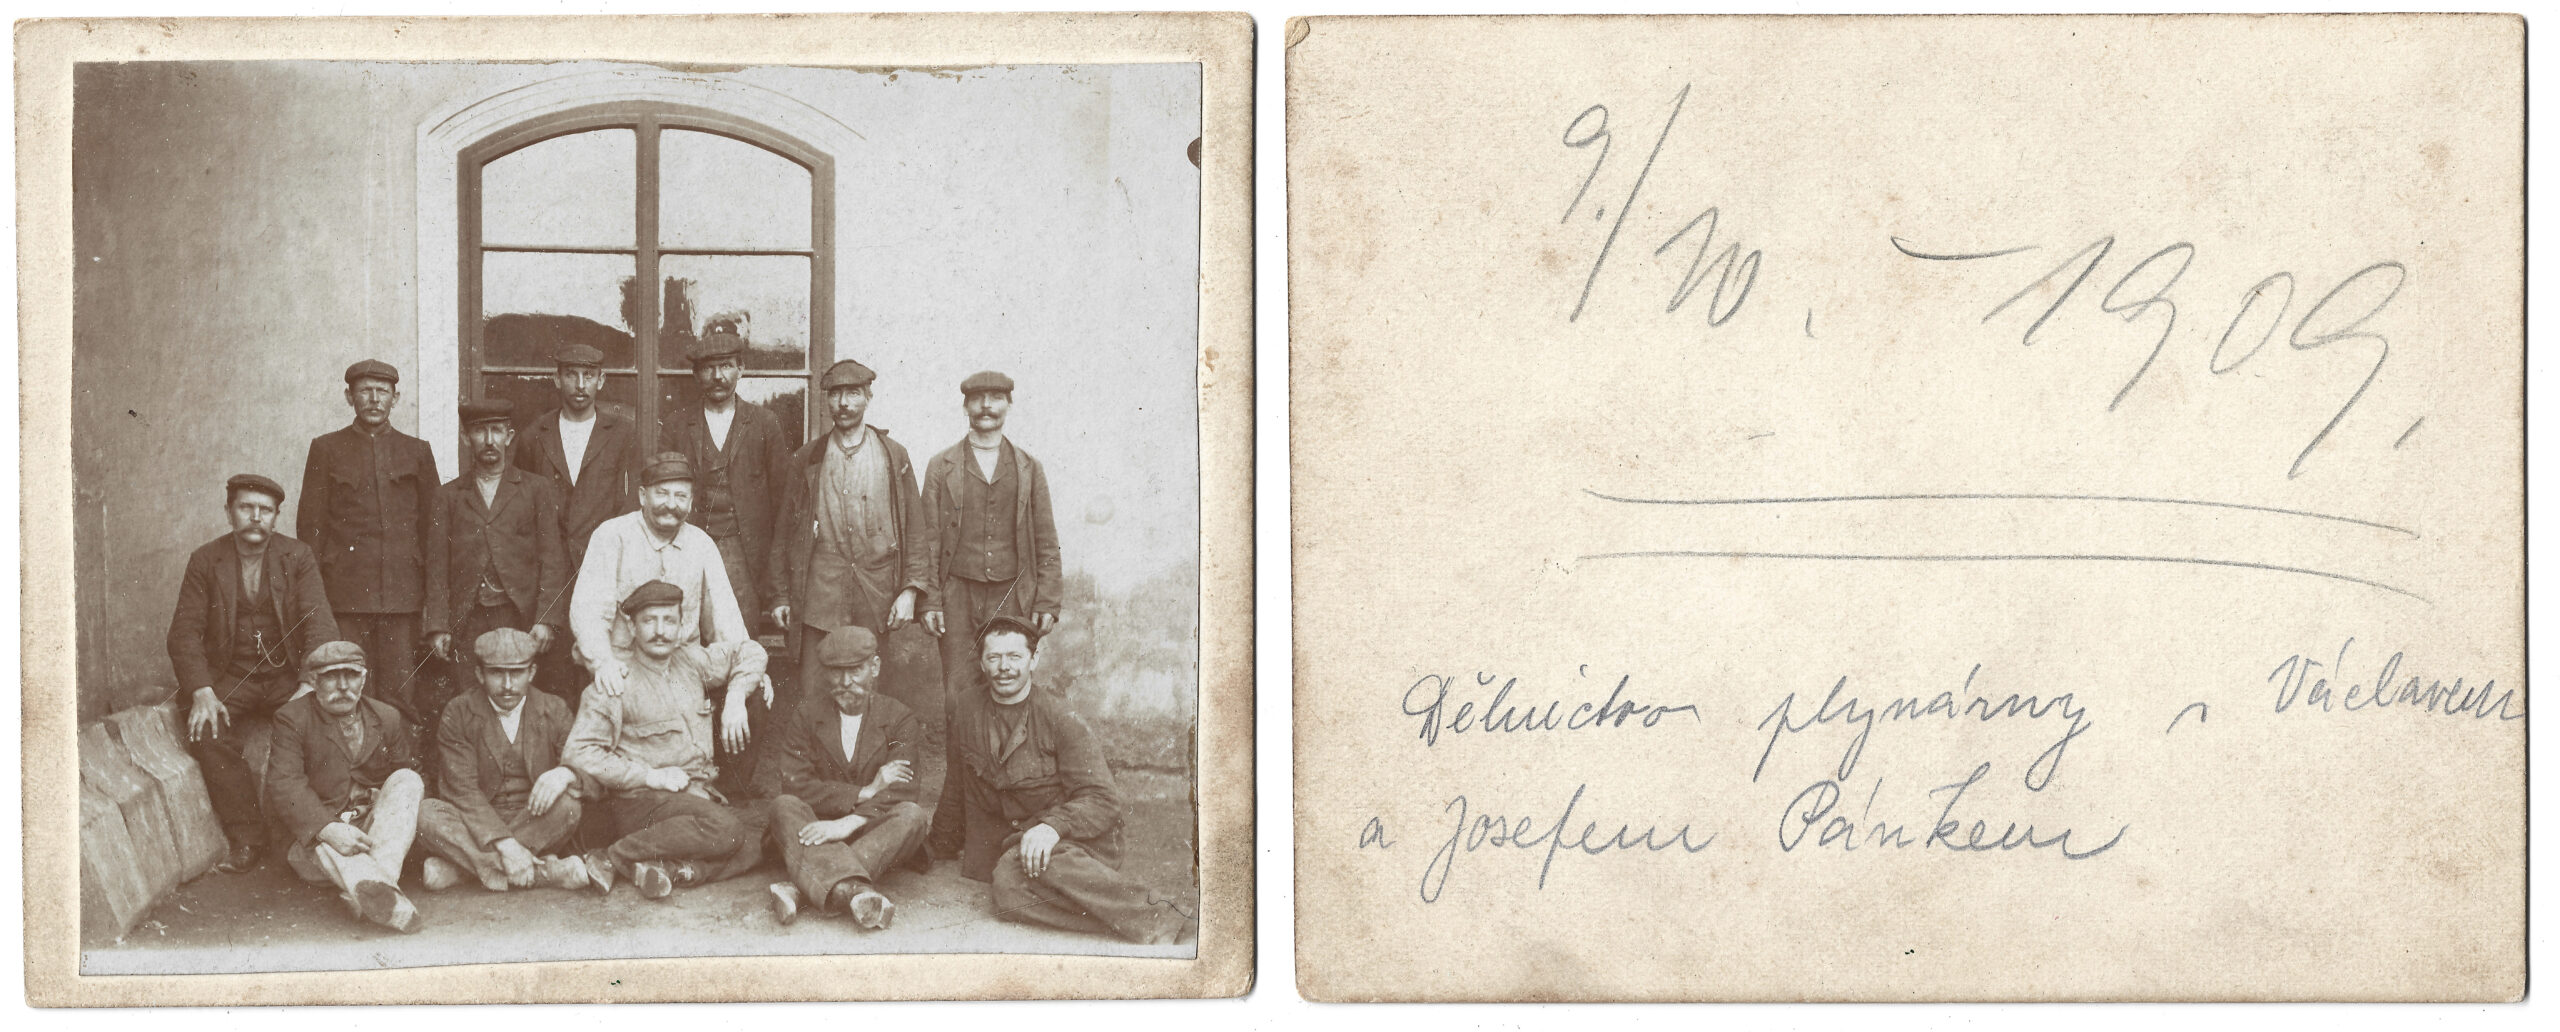 9./10. – 1909.
Dělnictvo plynárny s Václavem
a Josefem Pánkem